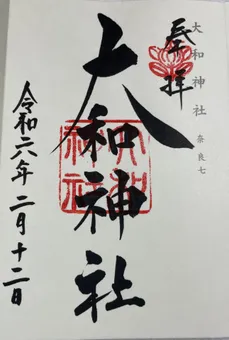 奉拝
大和神社 奈良七
大和神社
令和六年二月十二日